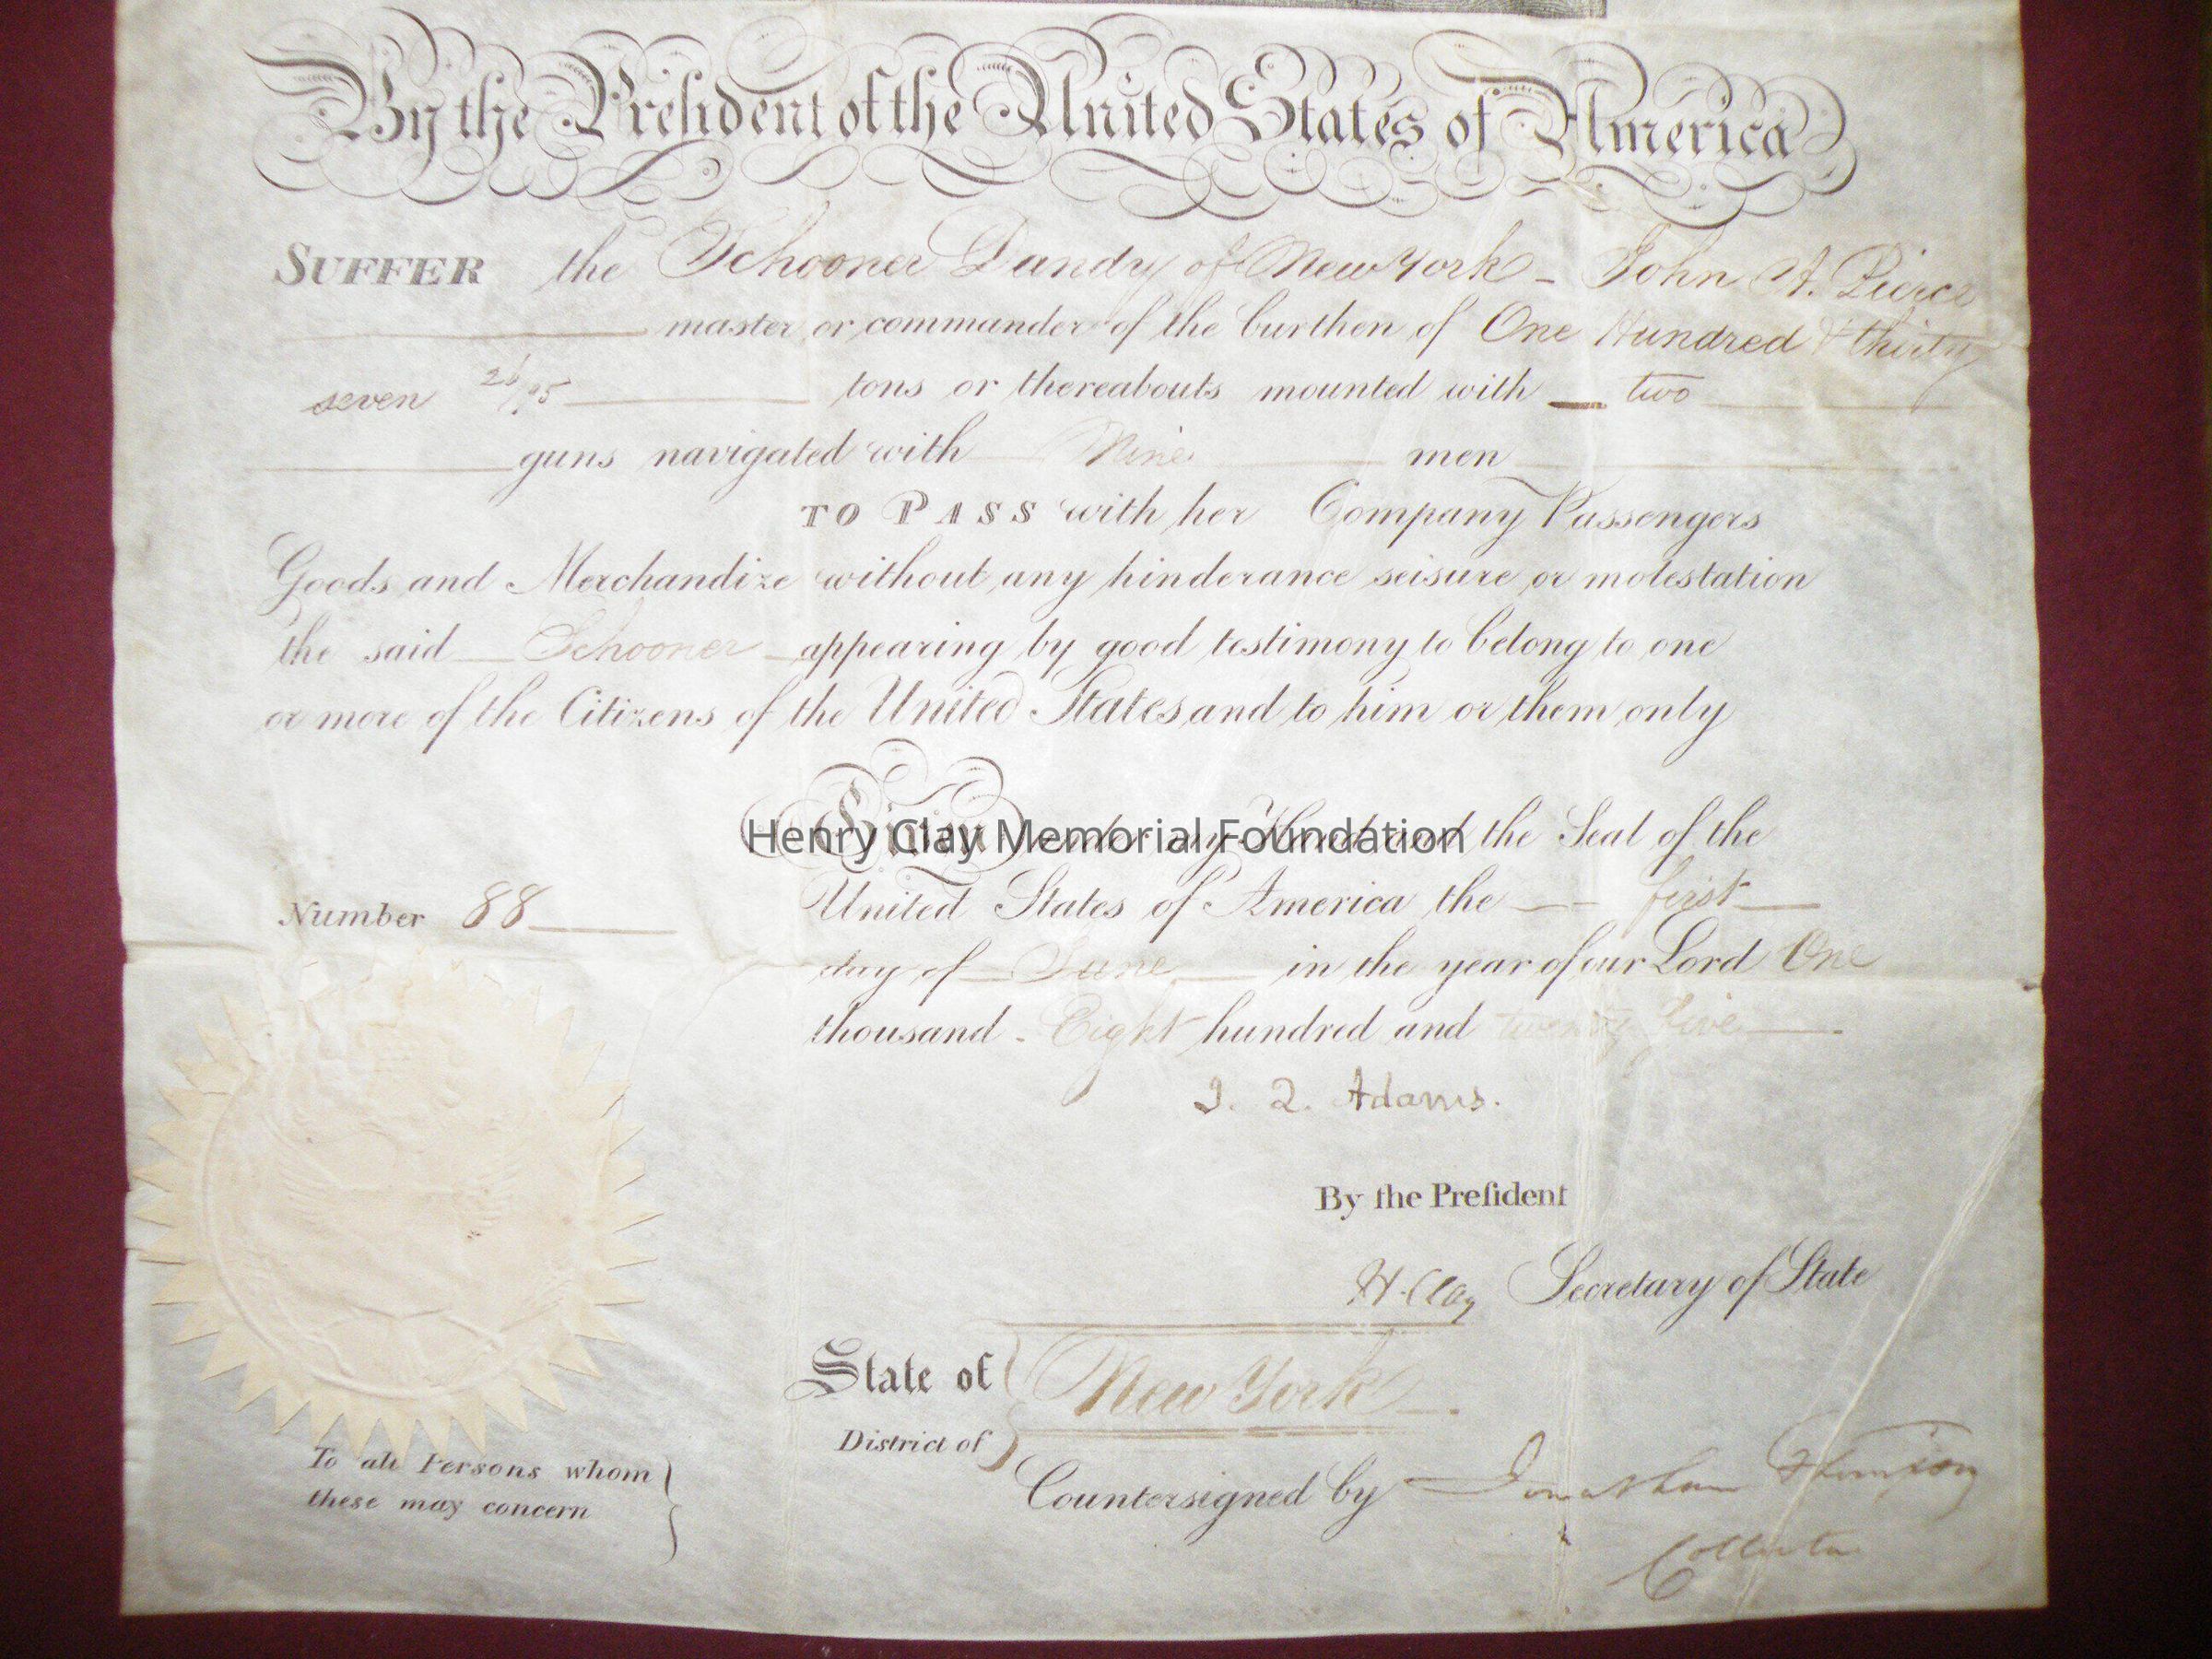 By the President of the United States of America
SUFFER the Schooner Dandy of New York - John A. Pierce
master or commander of the burthen of One Hundred & thirty
seven 26/95 tons or thereabouts mounted with two
guns navigated with Nine men
TO PASS with her Company Passengers
Goods and Merchandize without any hinderance seisure or molestation
the said Schooner appearing by good testimony to belong to one
or more of the Citizens of the United States and to him or them only
Given under my Hand and the Seal of the
Henry Clay Memorial Foundation
United States of America the first
Number 88
day of June in the year of our Lord One
thousand Eight hundred and twenty five
J. Q. Adams.
By the Preſident
H. Clay Secretary of State
State of New York
District of
To all Persons whom
these may concern
Countersigned by Jonathan Thompson
Collector